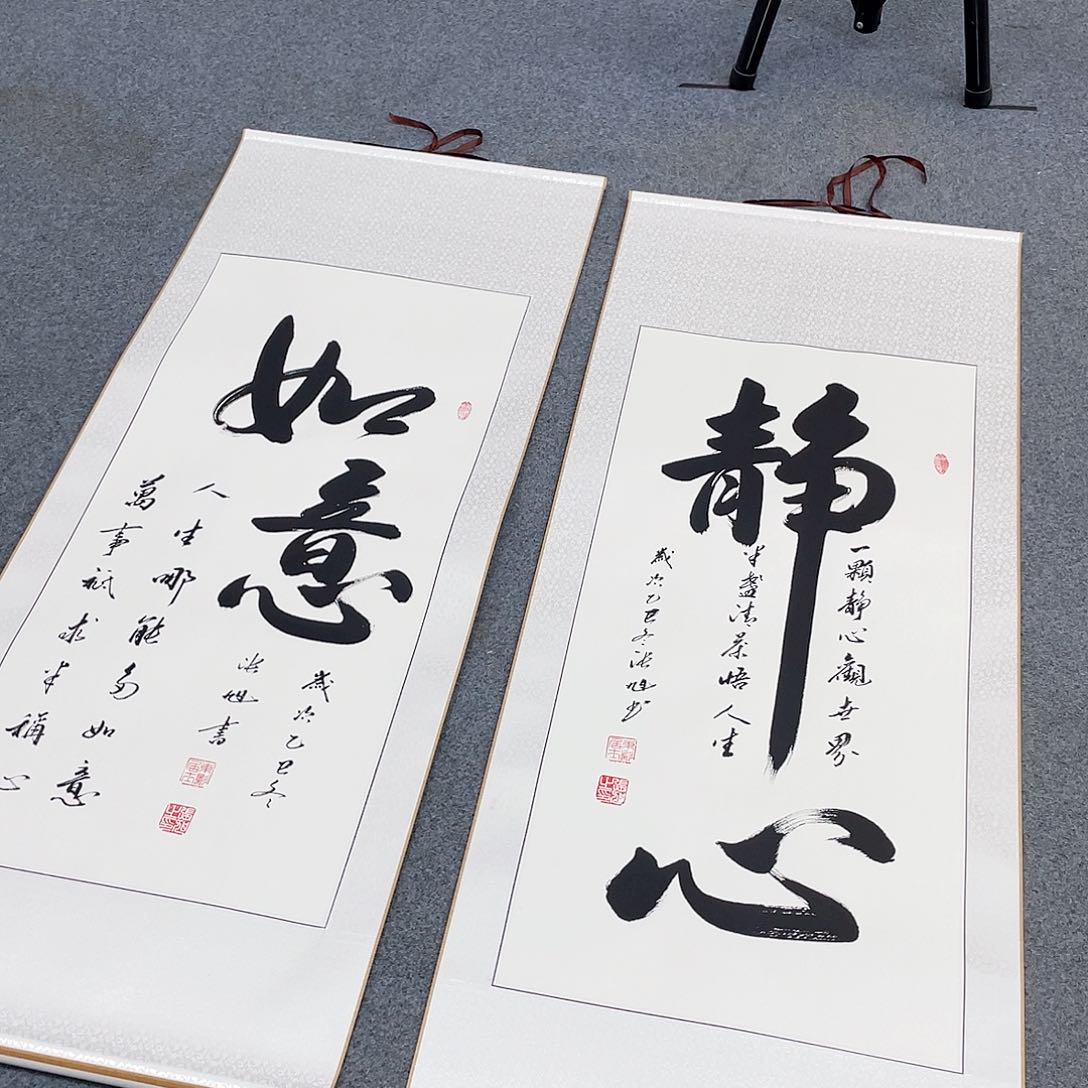 如意
人生哪能多如意
萬事祇求半稱心
歲次乙巳冬
浩旭書
靜心
一顆靜心觀世界
半盞清茶悟人生
歲次乙巳冬浩旭書